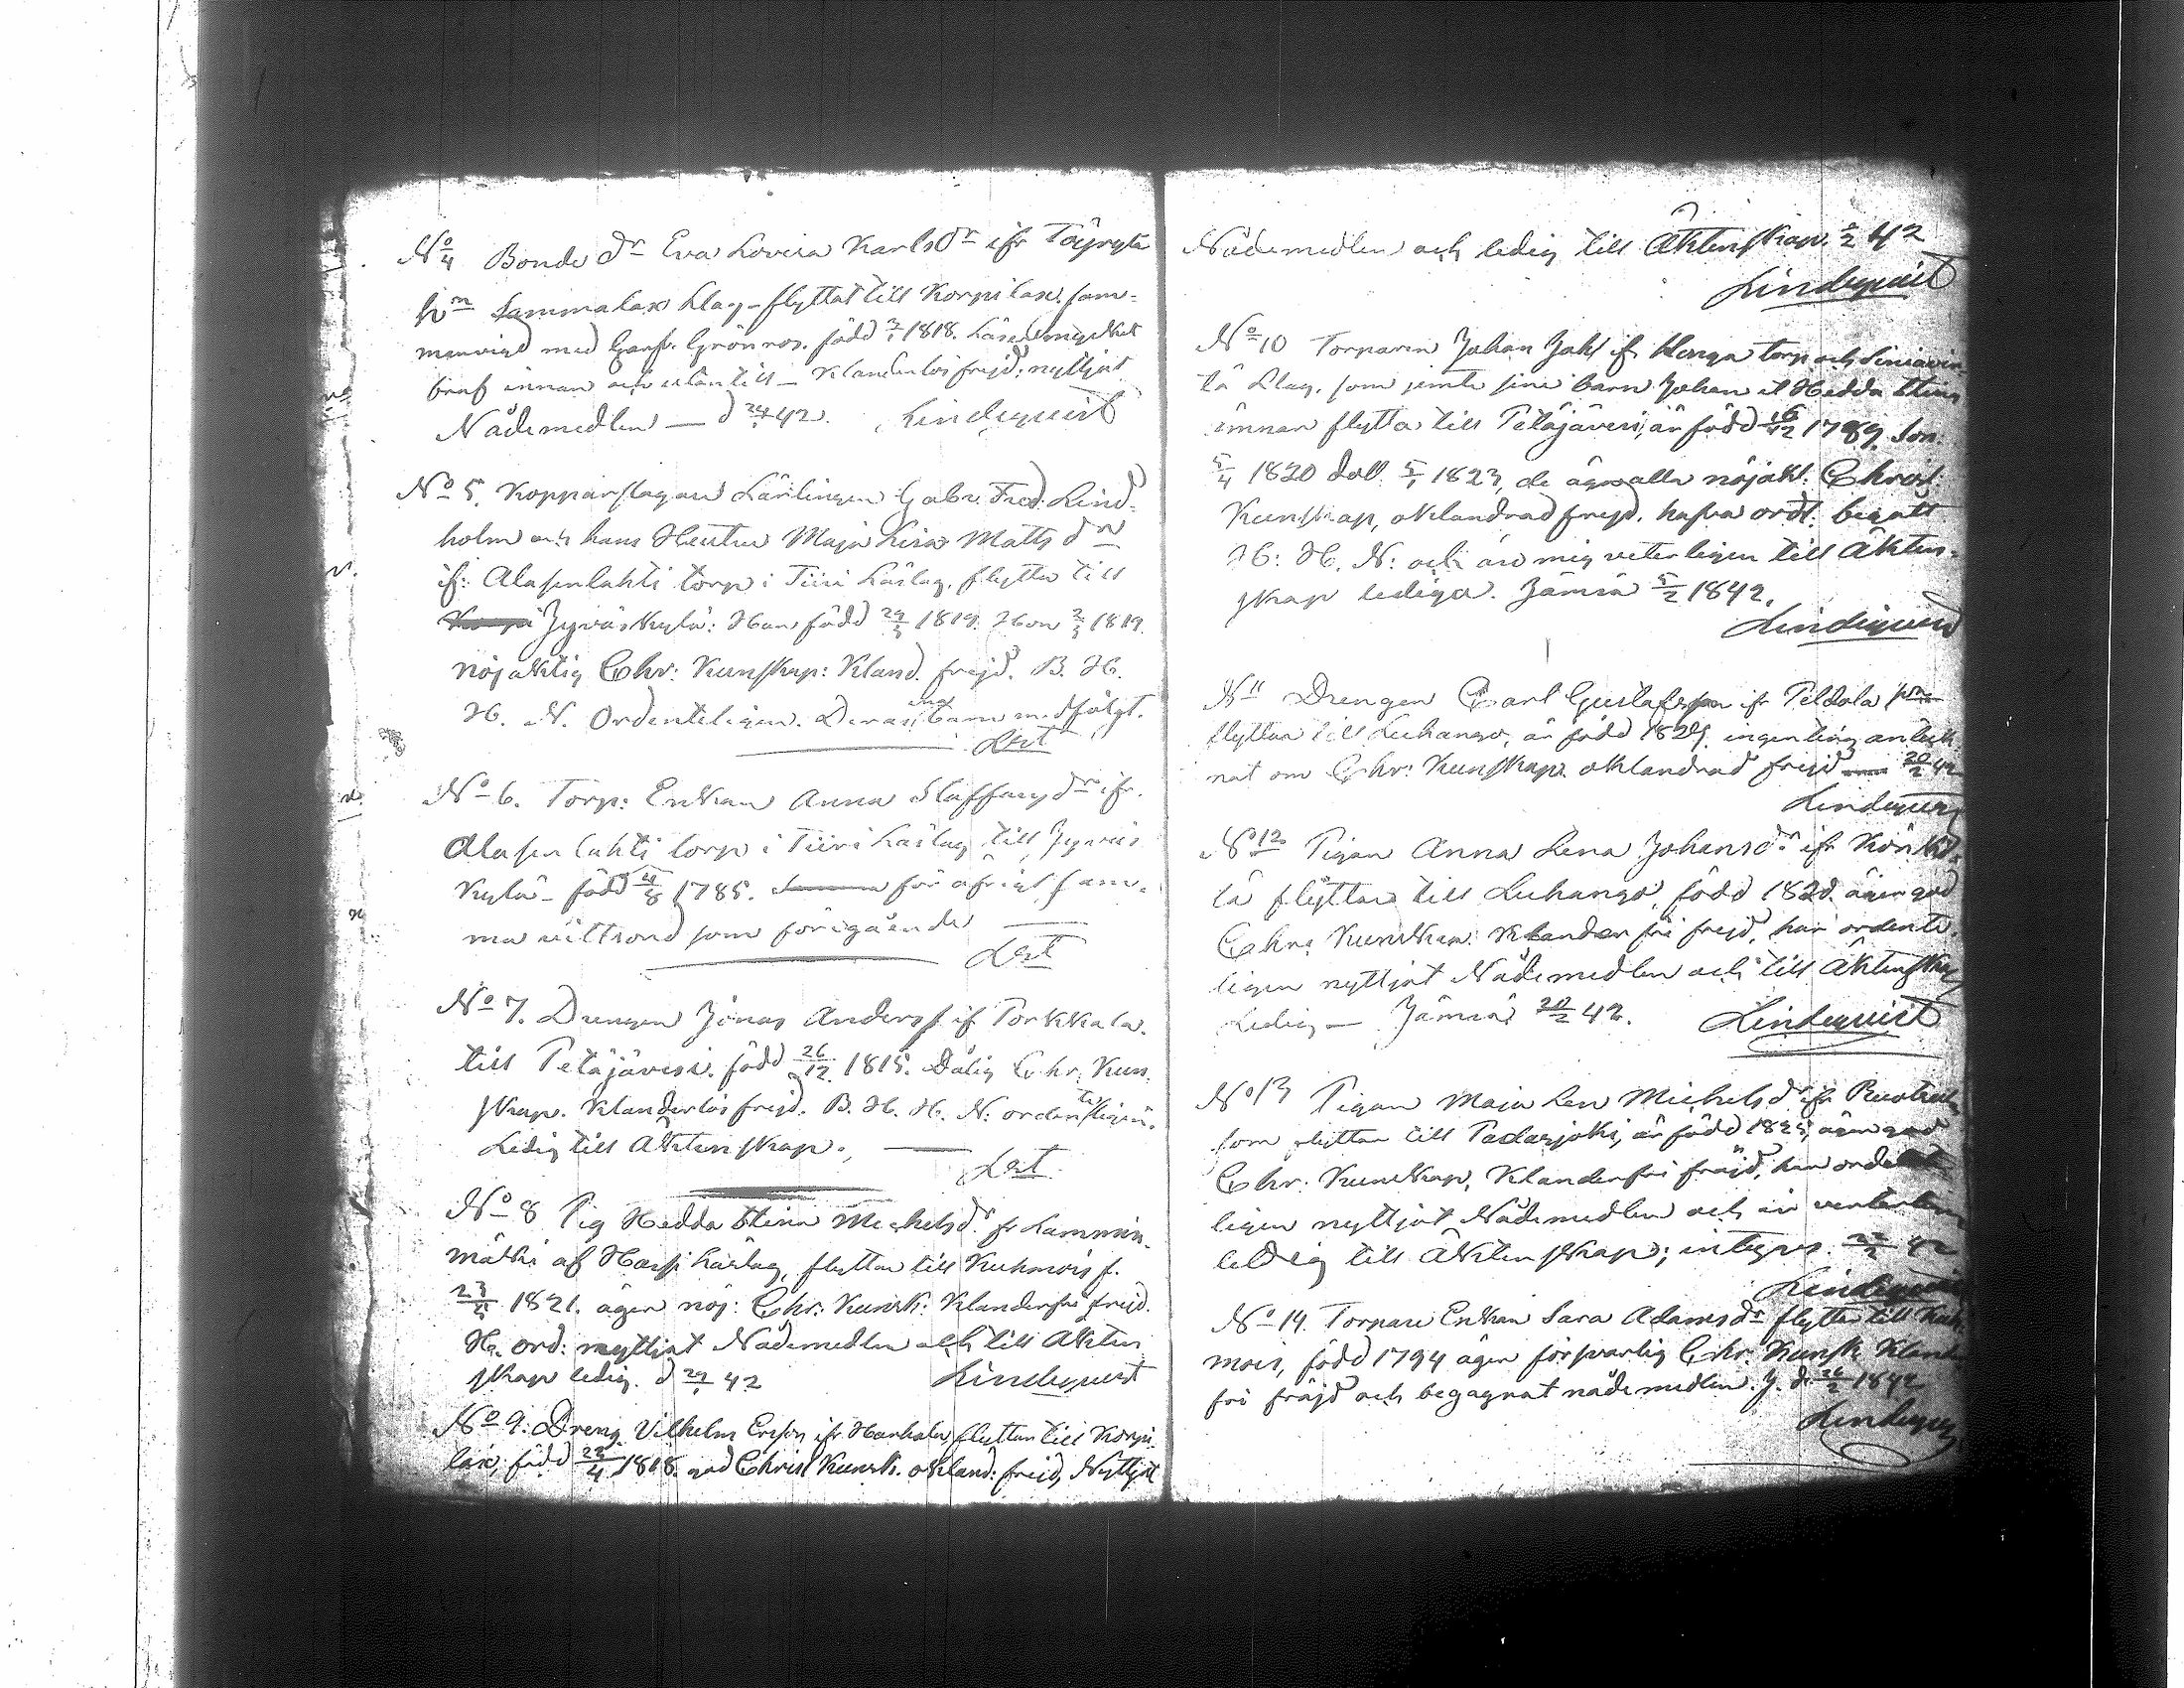 No 4 Bonde dr Eva Lovisa Karlsdr ifr Töyryle
hn Sammalax Llag flyttat till Korpilax. sam-
manvigd med Grönros. född 1818. Läser mycket
braf innan och utantill — Klanderlös frejd; nyttjat
Nådemedlen — d 24/1 42. Lindeqvist
No 5. Kopparslagare Lärlingen Gabr. Fred. Lind-
holm och hans Hustru Maja Lisa Matts dr
if: Alasenlahti torp i Tiiri Läslag. flytta till
Jyväskylä: Han född 29/3 1819. Hon 3/3 1819.
nöjaktig Chr: Kunskap: Kland. frejd. B. H.
H. N. Ordenteligen. Deras barn medföljt.
Lqt
No 6. Torp: Enkan Anna Staffansdr ifr.
Alasenlahti torp i Tiiri Läslag till Jyväs
kylä – född 4/8 1785. för öfrigt sam-
ma vittsord som föregående
Lqt
No 7. Drengen Jonas Anderss if Torkkala.
till Petäjävesi. född 26/12 1815. Dålig Chr: Kun-
skap. Klanderlös frejd. B. H. H. N: ordenteligen.
Ledig till Äktenskap.
Lqt
No 8 Pig Hedda Stina Michelsdr fr Lammin-
mäki af Hassi Läslag, flyttar till Kuhmois f.
23/4 1821. äger nöj: Chr: Kunsk: Klanderfri frejd.
H. ord: nyttjat Nådemedlen och till Äkten
skap ledig. d 29/1 42 Lindeqvist
No 9. Dreng Vilhelm Ersson ifr flyttar till Korpi-
lax, född 22/4 1818. god Christ Kunsk. okland: frejd, Nyttjat
Nådemedlen och ledig till Äktenskap. 2/2 42
Lindeqvist
No 10 Torparen Johan Jahl if Honga torp och
lä Llag. som jemte sine barn Johan et Hedda Stina
ämnar flytta till Petäjävesi, är född 16/12 1789. Son.
5/4 1820 dott. 5/1 1823, de äga alla nöjakt. Christ.
Kunskap, oklandrad frejd, hafva ordt. begått
H: H. N: och äro mig veterligen till Äkten-
skap lediga. Jämsä 5/2 1842.
Lindeqvist
N 11 Drengen Carl Gustafsson ifr Peldola som
flyttar till Luhango, är född 1824. ingenting anteck
nat om Chr: Kunskap. oklandrad frejd 20/2 42
Lindeqvist
No 12 Pigan Anna Lena Johansdr ifr
lä flyttar till Luhango, född 1820. äger god
Chr: Kunskap. Klanderfri frejd, har ordente-
ligen nyttjat Nådemedlen och till Äktenskap
Ledig — Jämsä 20/2 42. Lindeqvist
No 13 Pigan Maja Len Michelsd ifr
som flyttar till Padasjoki, är född 1825, äger god
Chr. Kunskap, Klanderfri fräjd, har ordente
ligen nyttjat Nådemedlen och är veterligen
ledig till Äktenskap; intygas. 22/2 42
Lindeqvist
No 14. Torpare Enkan Sara Adamsdr flytta till Kuh-
mois, född 1794 äger försvarlig Chr. Kunsk Klander
fri fräjd och begagnat nådemedlen. J. d. 26/2 1842
Lindeqvist